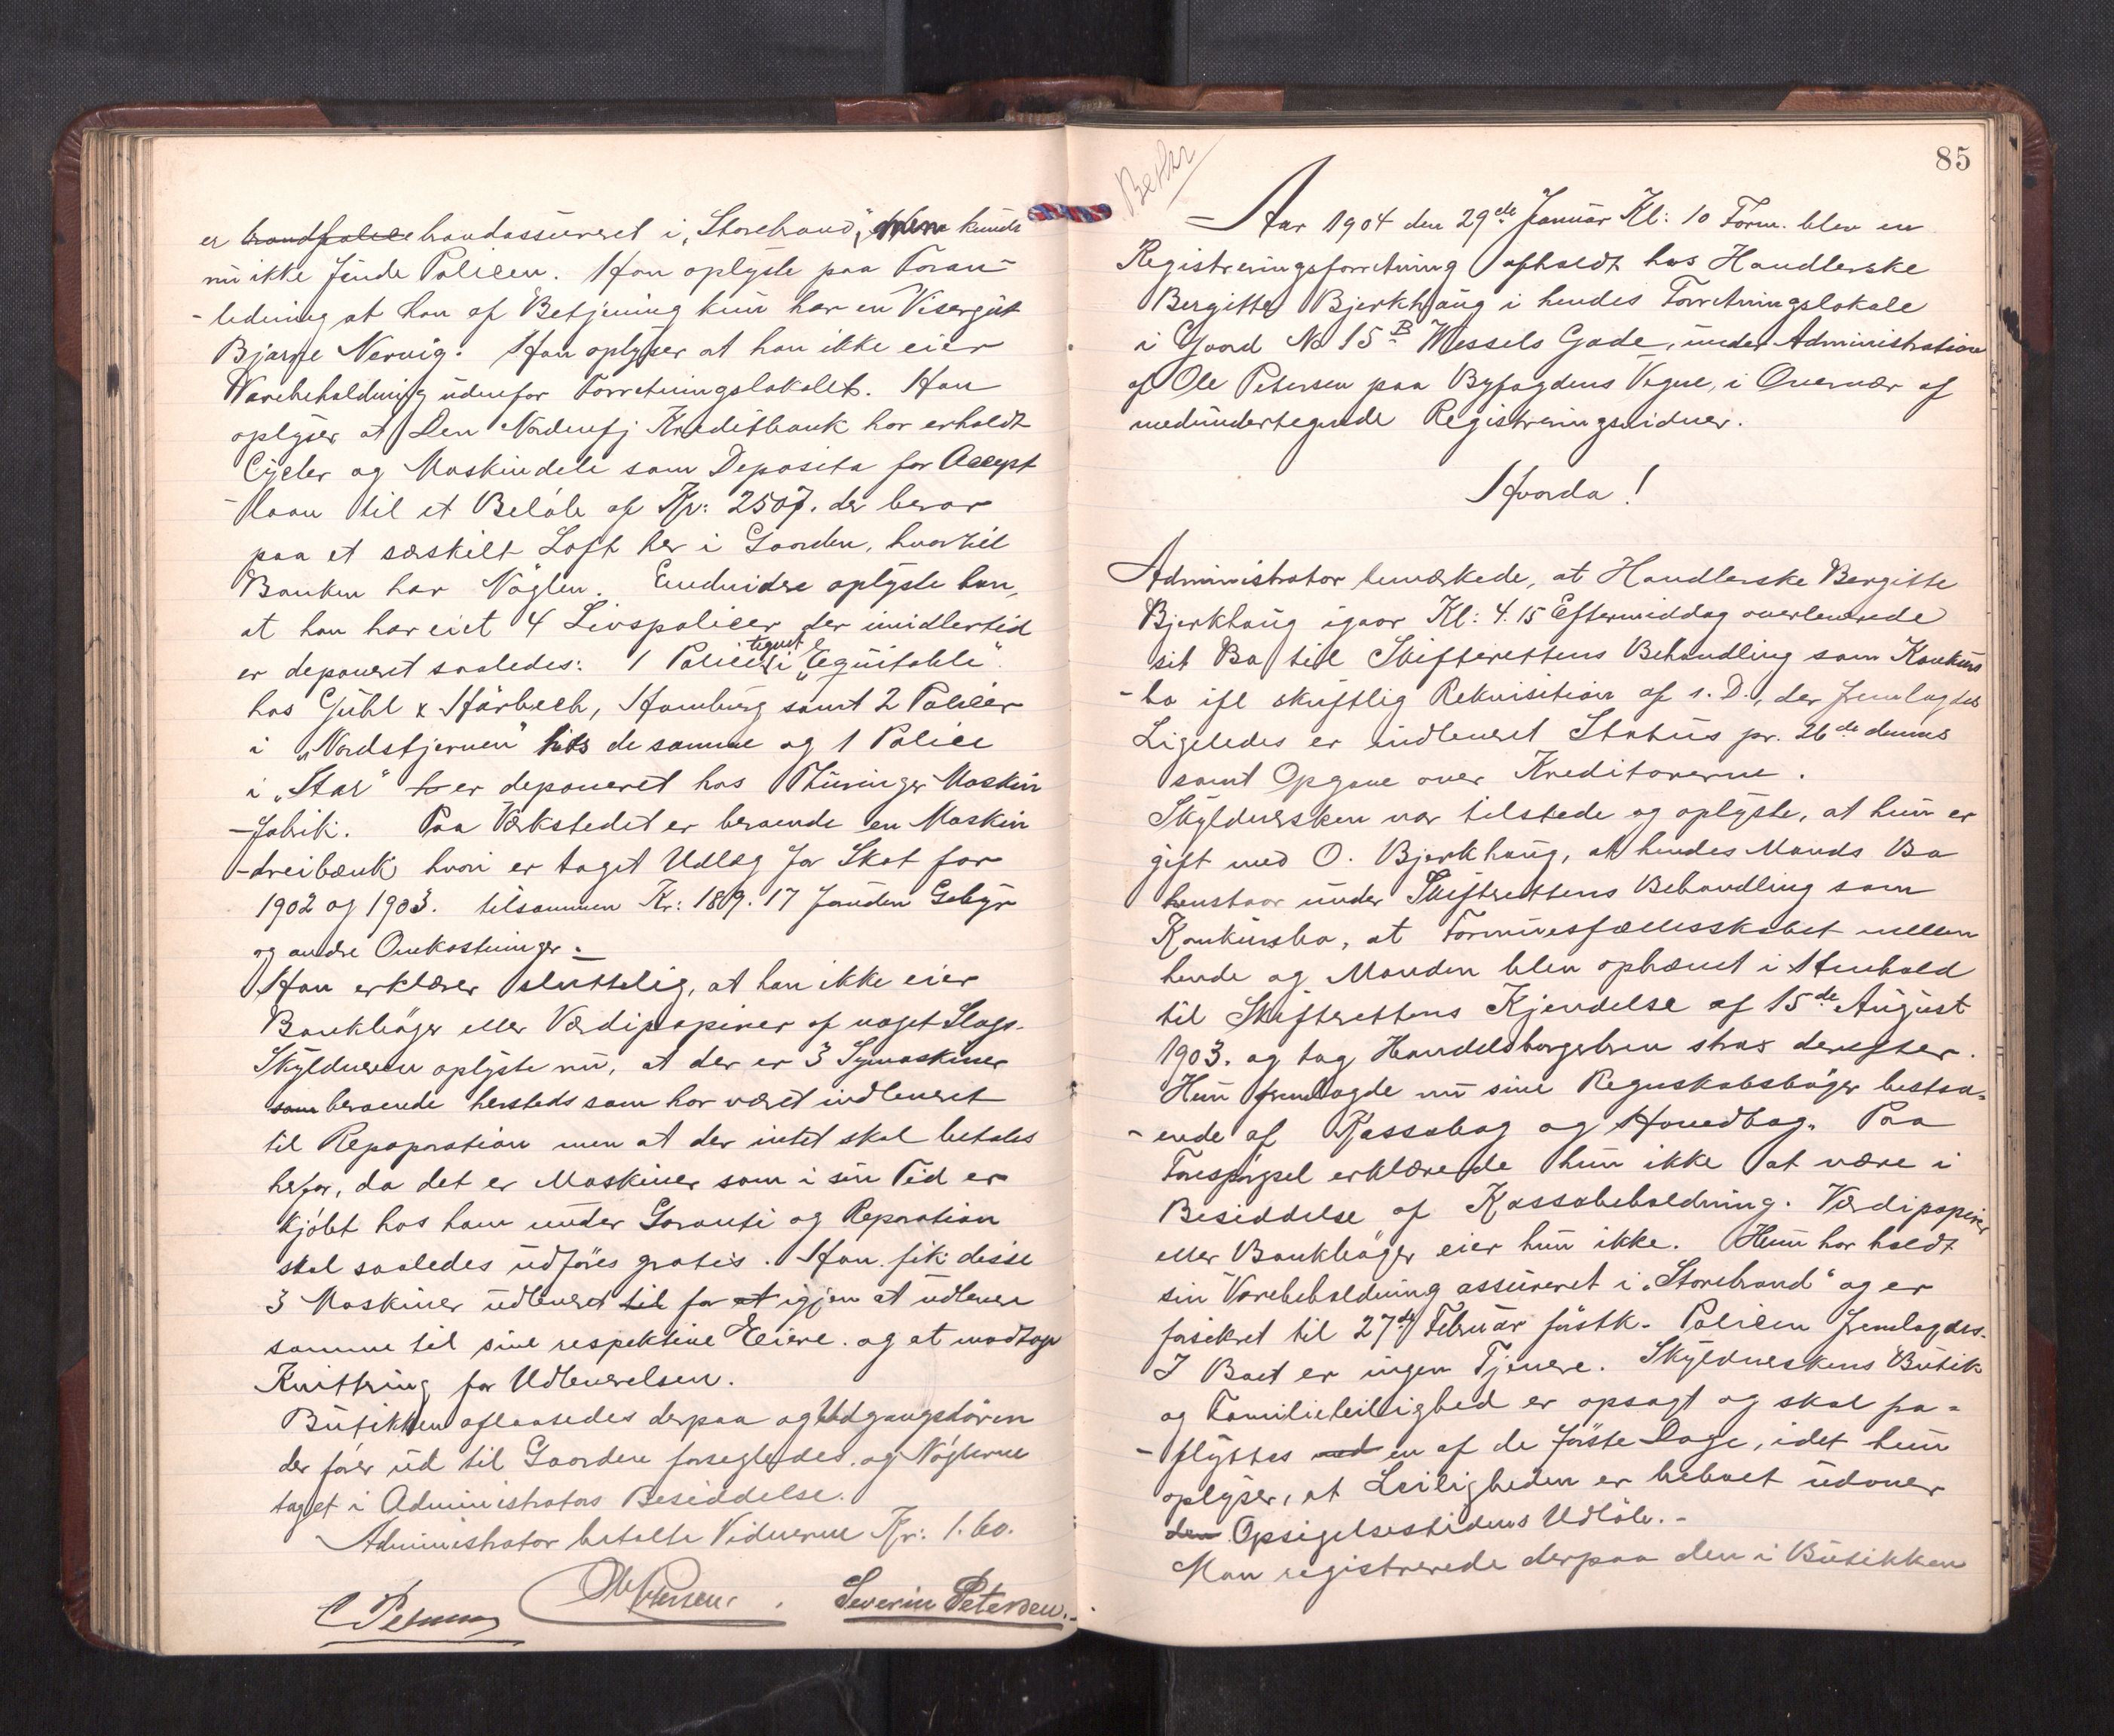 er brandpolice brandassureret i „Storebrand", men kunde
nu ikke finde Policen. Han oplyste paa Foran-
-ledning at han af Betjening kun har en Visergut
Bjarne Nervig. Han oplyser at han ikke eier
Varebeholdning udenfor Forretningslokalet. Han
oplyser at Den Nordenfj Kreditbank har erholdt
Cycler og Maskindele som Deposita for Accept
-laan til et Beløb af Kr: 2507. der beror
paa et særskilt Loft her i Gaarden, hvortil
Banken har Nøglen. Endvidere oplyste han,
at han har eiet 4 Livspolicer der imidlertid
er deponeret saaledes: 1 Police tegnet i „Equitable".
hos Guhl & Harbeck, Hamburg samt 2 Policer
i „Nordstjernen" hos de samme og 1 Police
i „Star" er deponeret hos Thüringer Maskin
-fabrik. Paa Værkstedet er beroende en Maskin
-dreibænk hvori er taget Udlæg for Skat for
1902 og 1903. tilsammen Kr: 189.17 foruden Gebyr
og andre Omkostninger.
Han erklærer sluttelig, at han ikke eier
Bankbøger eller Værdipapirer af noget Slags.
Skyldneren oplyste nu, at der er 3 Symaskiner
som beroende hersteds som har været indleveret
til Repaparation men at der intet skal betales
herfor, da det er Maskiner som i sin Tid er
kjøbt hos ham under Garanti og Reparation
skal saaledes udføres gratis. Han fik disse
3 Maskiner udleveret til for at igjen at udlevere
samme til sine respektive Eiere. og at modtage
Kvittering for Udleverelsen.
Butikken aflaasedes derpaa og Udgangsdøren
der fører ud til Gaarden forsegledes, og Nøglerne
taget i Administrators Besiddelse.
Administrator betalte Vidnerne Kr: 1.60.
C Petersen Ole Petersen. Severin Petersen.
85
Aar 1904 den 29de Januar Kl: 10 Form. blev en
Registreringsforretning afholdt hos Handlerske
Bergitte Bjerkhaug i hendes Forretningslokale
i Gaard No 15B Wessels Gade, under Administration
af Ole Petersen paa Byfogdens Vegne, i Overvær af
medundertegnede Registreringsvidner.
Hvorda!
Administrator bemærkede, at Handlerske Bergitte
Bjerkhaug igaar Kl: 4.15 Eftermiddag overleverede
sit Bo til Skifterettens Behandling som Konkurs
-bo ifl skriftlig Rekvisition af s. D., der fremlagdes
Ligeledes er indleveret Status pr. 26de dennes
samt Opgave over Kreditorerne.
Skyldnersken var tilstede og oplyste, at hun er
gift med O. Bjerkhaug, at hendes Mands Bo
henstaar under Skifterettens Behandling som
Konkursbo, at Formuesfællesskabet mellem
hende og Manden blev ophævet i Henhold
til Skifterettens Kjendelse af 15de August
1903. og tog Handelsborgerbrev strax derefter.
Hun fremlagde nu sine Regnskabsbøger bestaa-
-ende af Kassabog og Hovedbog. Paa
Forespørgsel erklærede hun ikke at være i
Besiddelse af Kassabeholdning. Værdipapirer
eller Bankbøger eier hun ikke. Hun har holdt
sin Varebeholdning assureret i „Storebrand" og er
forsikret til 27de Februar førstk. Policen fremlagdes.
I Boet er ingen Tjenere. Skyldnerskens Butik
og Familieleilighed er opsagt og skal fra-
-flyttes ved en af de første Dage, idet hun
oplyser, at Leiligheden er beboet udover
den Opsigelsestidens Udløb.-
Man registrerede derpaa den i Butikken